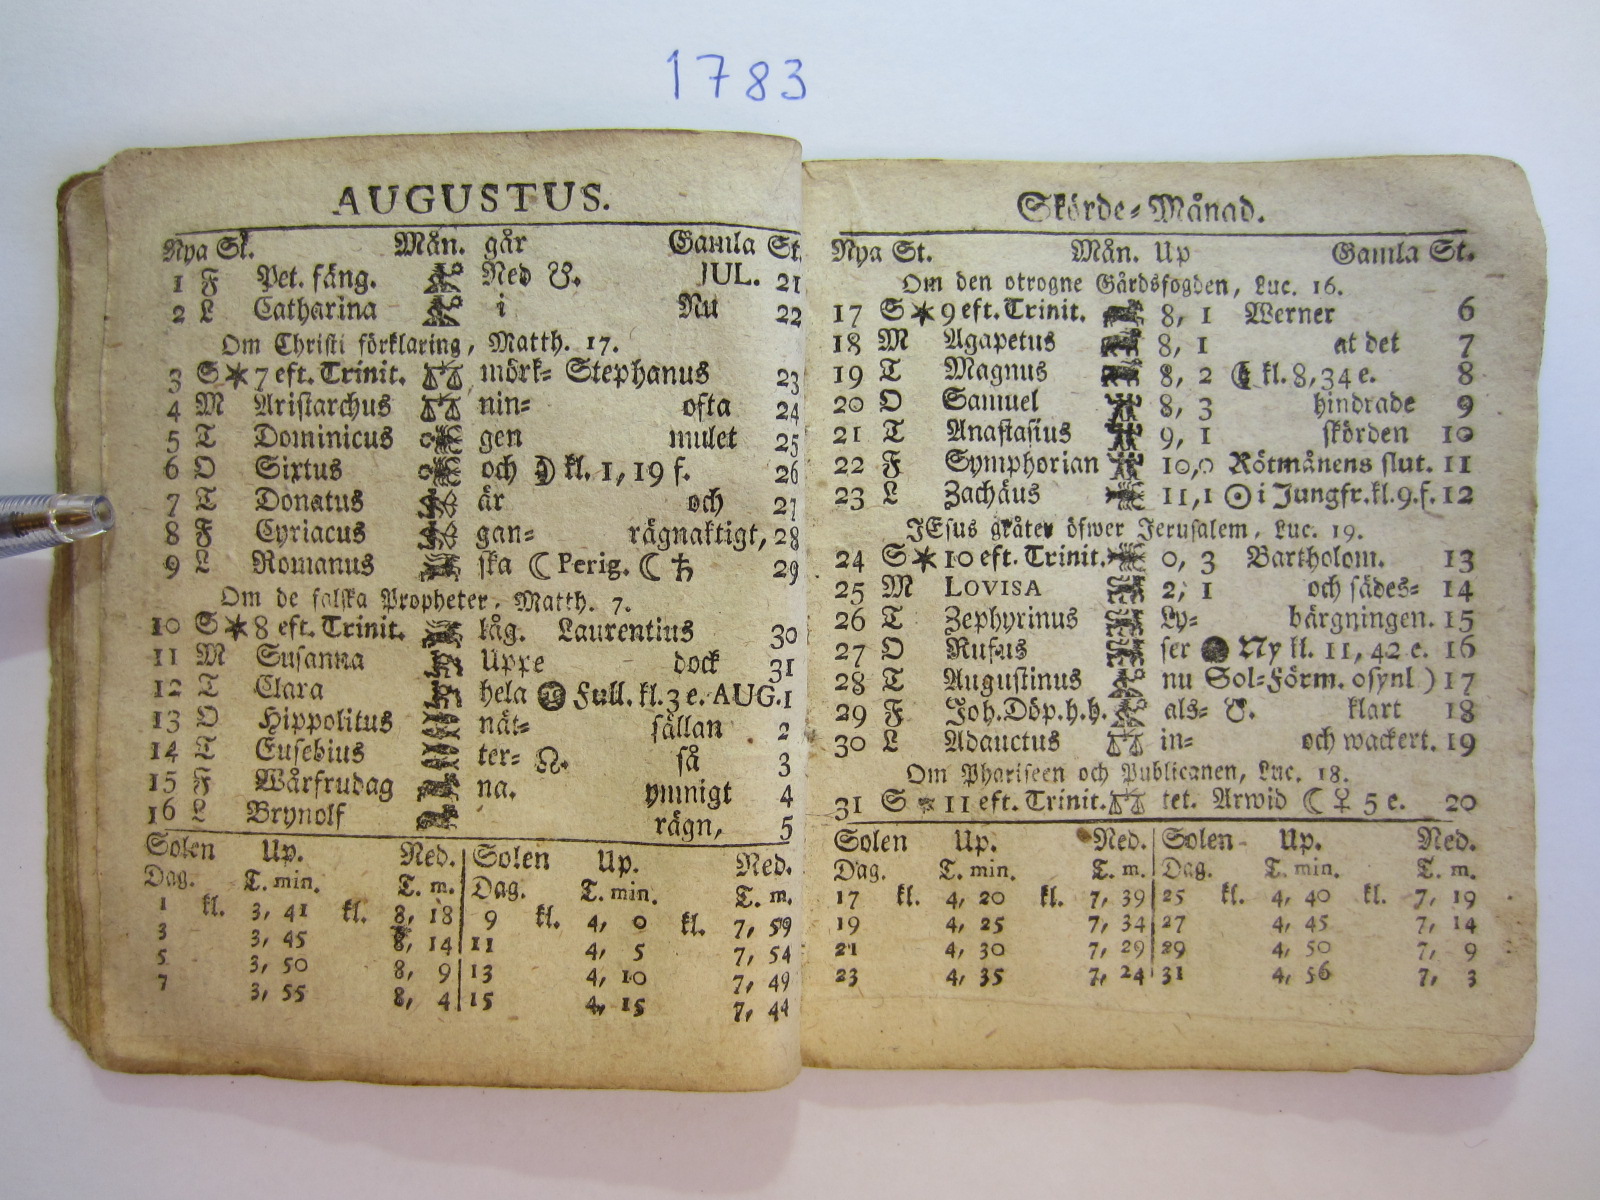 1783
AUGUSTUS.
Nya St. Mån. går Gamla St.
1 F Pet. fäng. Ned ☋. JUL. 21
2 L Catharina i Nu 22
Om Christi förklaring, Matth. 17.
3 S * 7 eft. Trinit. mörk= Stephanus 23
4 M Aristarchus nin= ofta 24
5 T Dominicus gen mulet 25
6 O Sixtus och ☽ kl. 1, 19 f. 26
7 T Donatus är och 27
8 F Cyriacus gan= rägnaktigt, 28
9 L Romanus ska ☾ Perig. ☾ ♄ 29
Om de falska Propheter, Matth. 7.
10 S * 8 eft. Trinit. låg. Laurentius 30
11 M Susanna Uppe dock 31
12 T Clara hela Full. kl. 3 e. AUG. 1
13 O Hippolitus nät= sällan 2
14 T Eusebius ter= ☊. så 3
15 F Wårfrudag na. ymnigt 4
16 L Brynolf rägn, 5
Solen Up. Ned. Solen Up. Ned.
Dag. T. min. T. m. Dag. T. min. T. m.
1 kl. 3, 41 kl. 8, 18 9 kl. 4, 0 kl. 7, 59
3 3, 45 8, 14 11 4, 5 7, 54
5 3, 50 8, 9 13 4, 10 7, 49
7 3, 55 8, 4 15 4, 15 7, 44
Skörde=Månad.
Nya St. Mån. Up Gamla St.
Om den otrogne Gårdsfogden, Luc. 16.
17 S * 9 eft. Trinit. 8, 1 Werner 6
18 M Agapetus 8, 1 at det 7
19 T Magnus 8, 2 ☾ kl. 8, 34 e. 8
20 O Samuel 8, 3 hindrade 9
21 T Anastasius 9, 1 skörden 10
22 F Symphorian 10, 0 Rötmånens slut. 11
23 L Zachäus 11, 1 ☉ i Jungfr. kl. 9. f. 12
JEsus gråter öfwer Jerusalem, Luc. 19.
24 S * 10 eft. Trinit. 0, 3 Bartholom. 13
25 M LOVISA 2, 1 och sädes= 14
26 T Zephyrinus Ly= bärgningen. 15
27 O Rufus ser ● Ny kl. 11, 42 e. 16
28 T Augustinus nu Sol=Förm. osynl ) 17
29 F Joh. Döp. h. h. als= ☋. klart 18
30 L Adauctus in= och wackert. 19
Om Phariseen och Publicanen, Luc. 18.
31 S * 11 eft. Trinit. tet. Arwid ☾ ♀ 5 e. 20
Solen Up. Ned. Solen Up. Ned.
Dag. T. min. T. m. Dag. T. min. T. m.
17 kl. 4, 20 kl. 7, 39 25 kl. 4, 40 kl. 7, 19
19 4, 25 7, 34 27 4, 45 7, 14
21 4, 30 7, 29 29 4, 50 7, 9
23 4, 35 7, 24 31 4, 56 7, 3